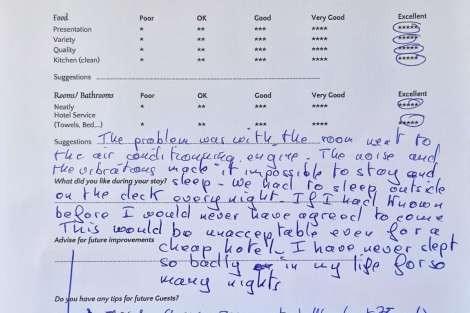 Food Poor OK Good Very Good Excellent
Presentation * ** *** **** *****
Variety * ** *** **** *****
Quality * ** *** **** *****
Kitchen (clean) * ** *** **** *****
Suggestions
Rooms/ Bathrooms Poor OK Good Very Good Excellent
Neatly * ** *** **** *****
Hotel Service
(Towels, Bed...) * ** *** **** *****
Suggestions The problem was with the room next to
the air conditionning engine. The noise and
the vibrations made it impossible to stay and
What did you like during your stay? sleep - we had to sleep outside
on the deck every night. If I had known
before I would never have agreed to come
This would be unacceptable even for a
Advice for future improvements cheap hotel. I have never slept
so badly in my life for so
many nights
Do you have any tips for future Guests?